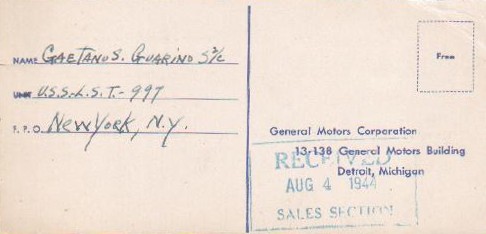 NAME GAETANO S. GUARINO S2/C
UNIT U.S.S.-L.S.T.-997
F. P. O. NEW YORK, N.Y.
Free
General Motors Corporation
13-138 General Motors Building
Detroit, Michigan
RECEIVED
AUG 4 1944
SALES SECTION